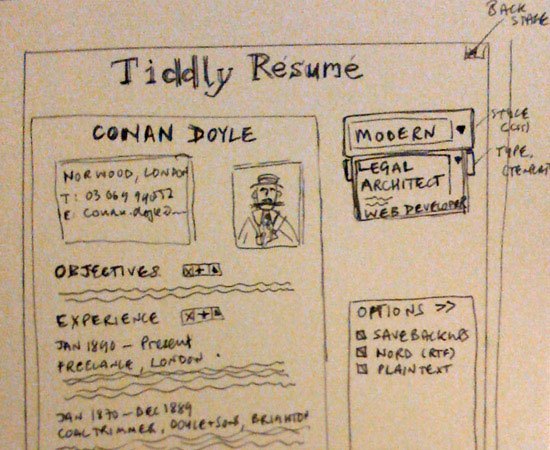 BACK
STAGE
Tiddly Résumé
CONAN DOYLE
NORWOOD, LONDON
T: 03 069 99072
E: conan.doyle@
OBJECTIVES X + ▲
EXPERIENCE X + ▲
JAN 1890 - Present
FREELANCE, LONDON.
JAN 1870 - DEC 1889
COAL TRIMMER, DOYLE + SONS, BRIGHTON
MODERN ▼
STYLE
(CSS)
LEGAL ▼
ARCHITECT
WEB DEVELOPER
TYPE,
OPTIONS >>
SAVE BACKUPS
NORD (RTF)
PLAINTEXT